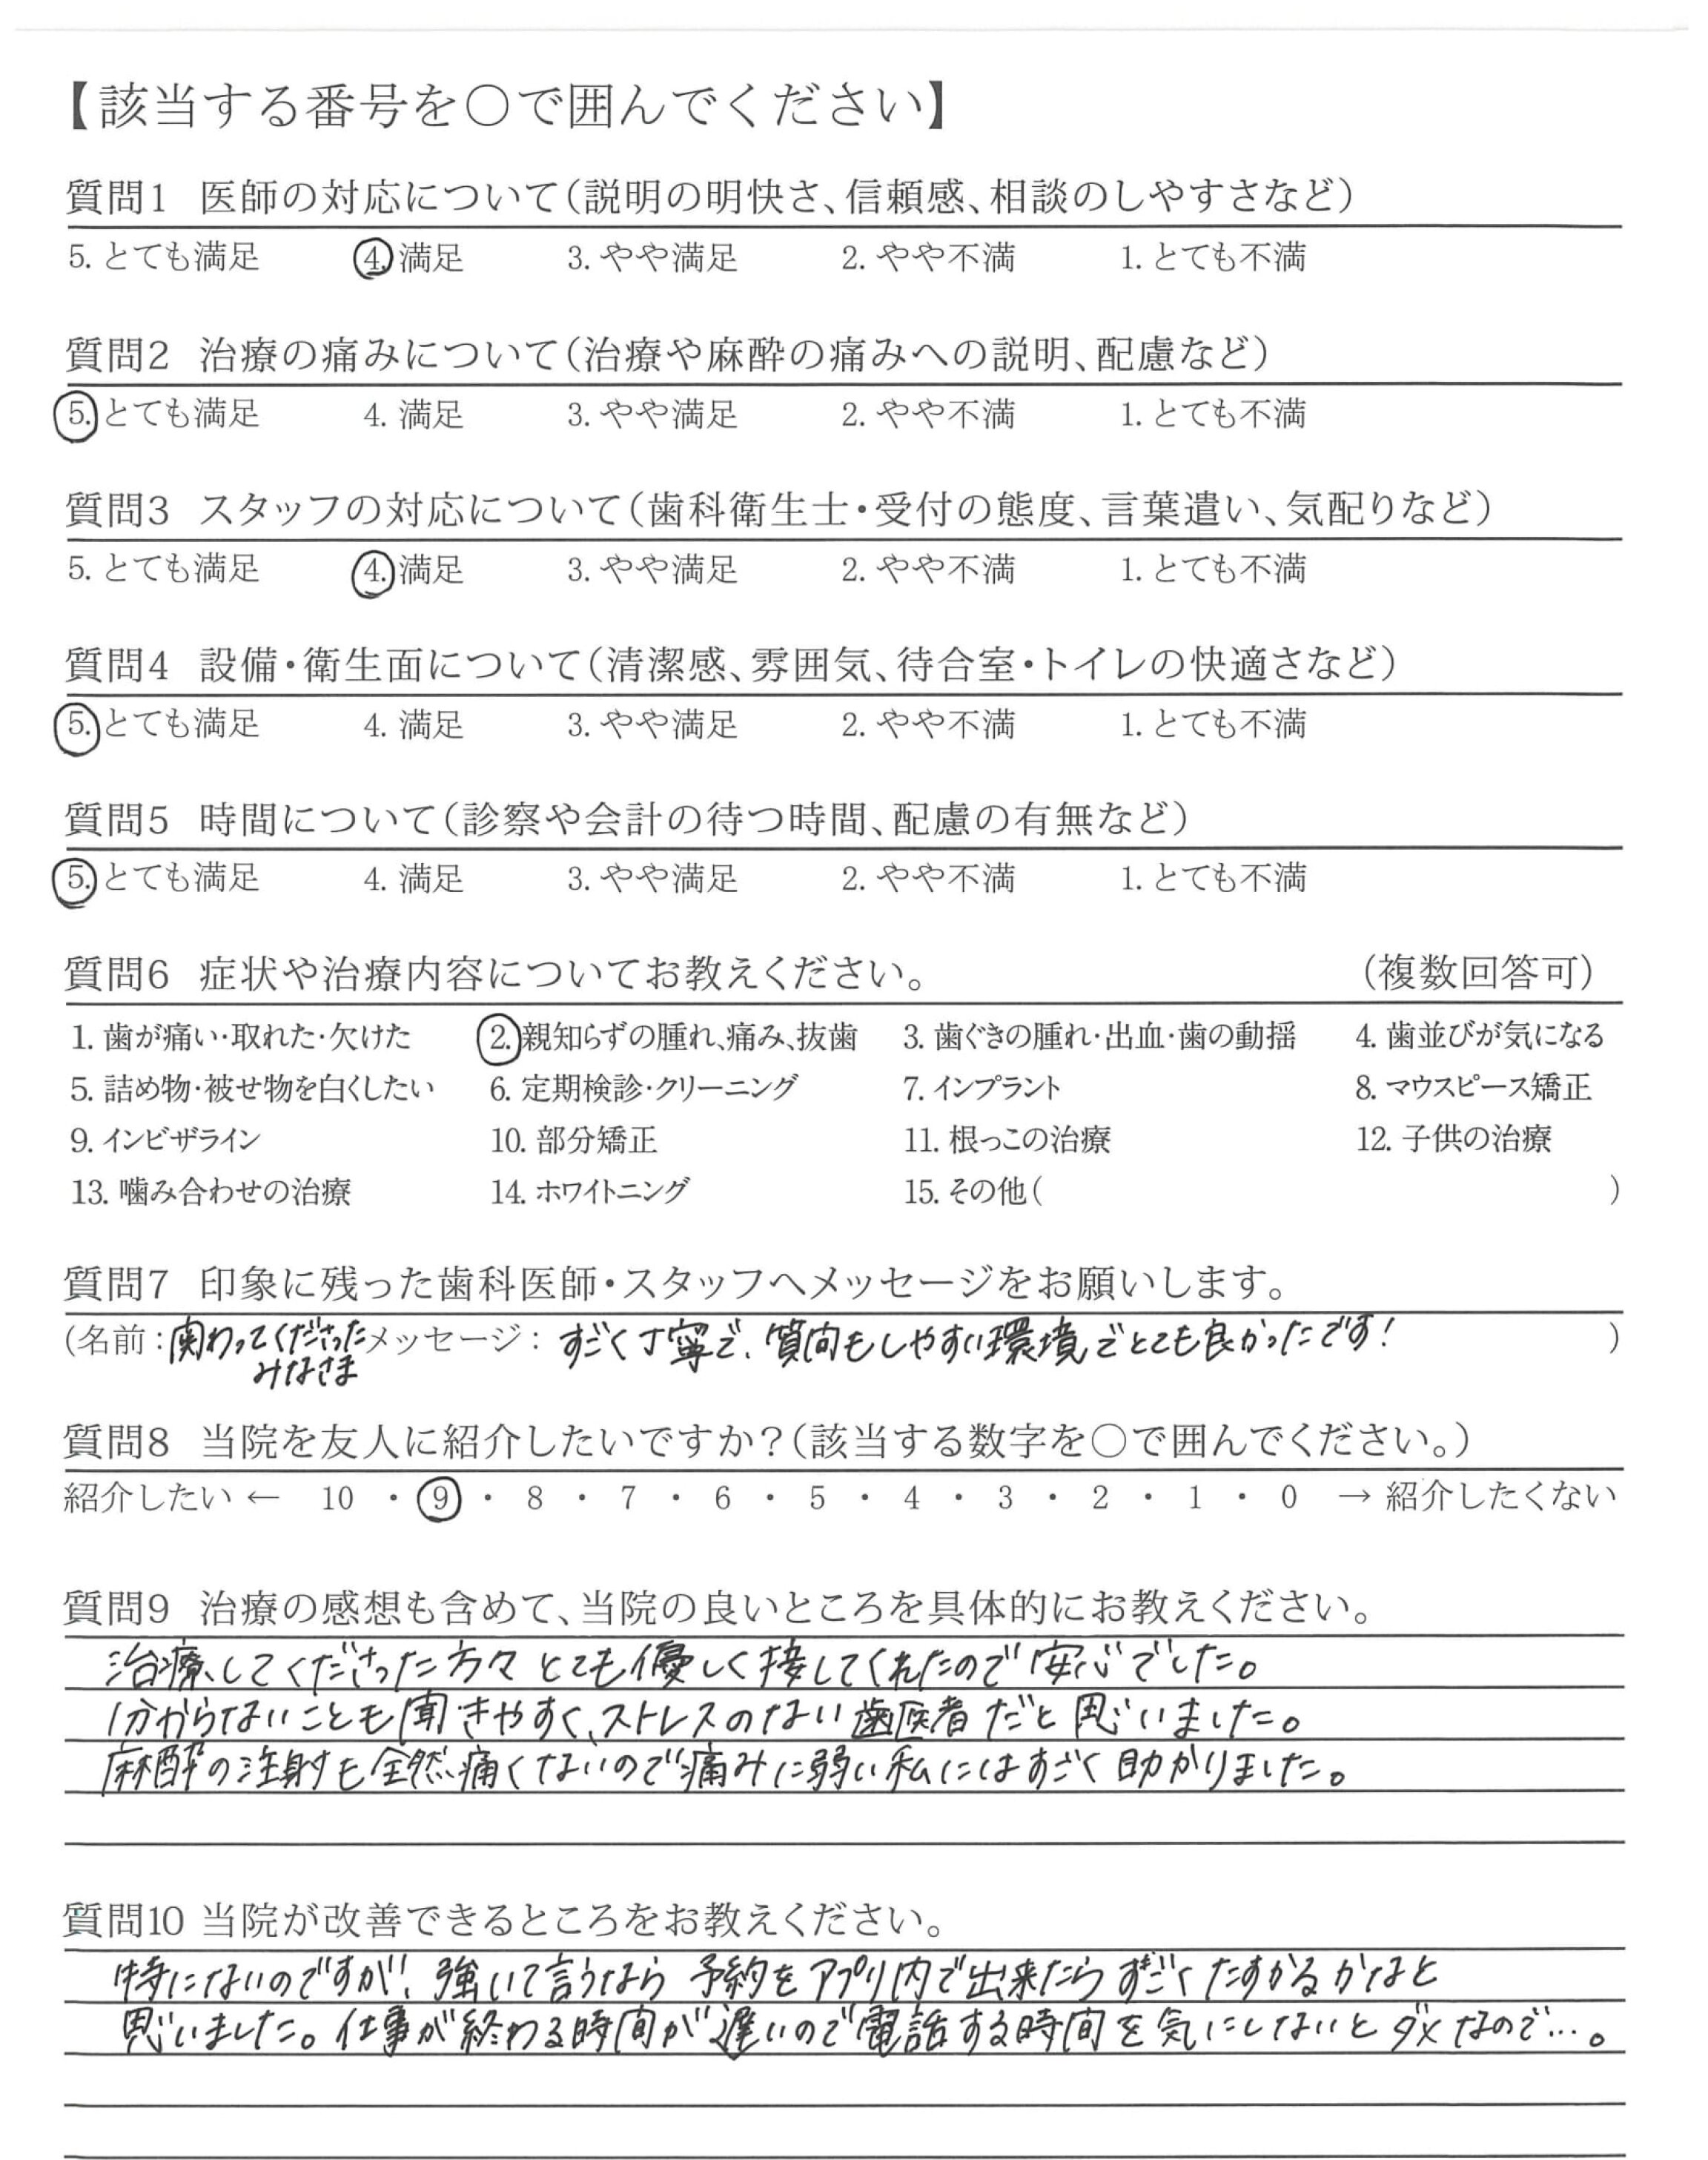 【該当する番号を○で囲んでください】
質問1 医師の対応について(説明の明快さ、信頼感、相談のしやすさなど)
5. とても満足 4. 満足 3. やや満足 2. やや不満 1. とても不満
質問2 治療の痛みについて(治療や麻酔の痛みへの説明、配慮など)
5. とても満足 4. 満足 3. やや満足 2. やや不満 1. とても不満
質問3 スタッフの対応について(歯科衛生士・受付の態度、言葉遣い、気配りなど)
5. とても満足 4. 満足 3. やや満足 2. やや不満 1. とても不満
質問4 設備・衛生面について(清潔感、雰囲気、待合室・トイレの快適さなど)
5. とても満足 4. 満足 3. やや満足 2. やや不満 1. とても不満
質問5 時間について(診察や会計の待つ時間、配慮の有無など)
5. とても満足 4. 満足 3. やや満足 2. やや不満 1. とても不満
質問6 症状や治療内容についてお教えください。 (複数回答可)
1. 歯が痛い・取れた・欠けた 2. 親知らずの腫れ、痛み、抜歯 3. 歯ぐきの腫れ・出血・歯の動揺 4. 歯並びが気になる
5. 詰め物・被せ物を白くしたい 6. 定期検診・クリーニング 7. インプラント 8. マウスピース矯正
9. インビザライン 10. 部分矯正 11. 根っこの治療 12. 子供の治療
13. 噛み合わせの治療 14. ホワイトニング 15. その他( )
質問7 印象に残った歯科医師・スタッフへメッセージをお願いします。
(名前:関わってくださった メッセージ: すごく丁寧で、質問もしやすい環境でとても良かったです! )
みなさま
質問8 当院を友人に紹介したいですか?(該当する数字を○で囲んでください。)
紹介したい ← 10 ・ 9 ・ 8 ・ 7 ・ 6 ・ 5 ・ 4 ・ 3 ・ 2 ・ 1 ・ 0 → 紹介したくない
質問9 治療の感想も含めて、当院の良いところを具体的にお教えください。
治療してくださった方々とても優しく接してくれたので安心でした。
分からないことも聞きやすく、ストレスのない歯医者だと思いました。
麻酔の注射も全然痛くないので痛みに弱い私にはすごく助かりました。
質問10 当院が改善できるところをお教えください。
特にないのですが、強いて言うなら 予約をアプリ内で出来たらすごくたすかるかなと
思いました。仕事が終わる時間が遅いので電話する時間を気にしないとダメなので…。